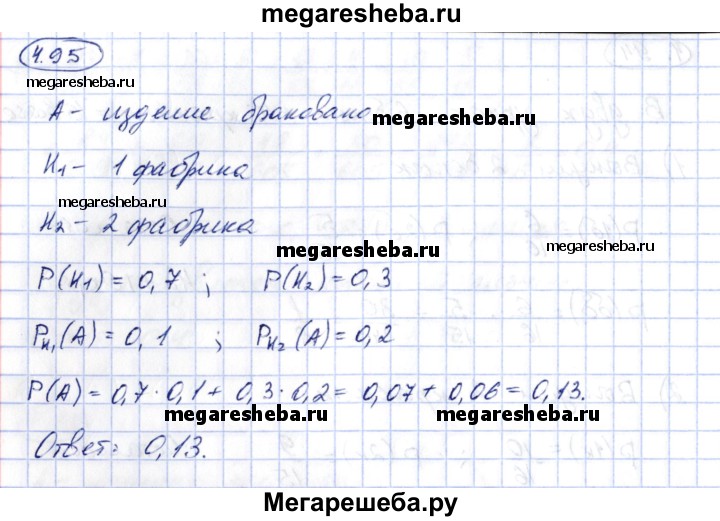 megaresheba.ru
4.95
megaresheba.ru
A - изделие браковано
megaresheba.ru
H₁ - 1 фабрика
megaresheba.ru
H₂ - 2 фабрика
megaresheba.ru
megaresheba.ru
P(H₁) = 0,7 ; P(H₂) = 0,3
P_H₁(A) = 0,1 ; P_H₂(A) = 0,2
P(A) = 0,7 · 0,1 + 0,3 · 0,2 = 0,07 + 0,06 = 0,13.
megaresheba.ru
megaresheba.ru
Ответ: 0,13.
Мегарешеба.ру